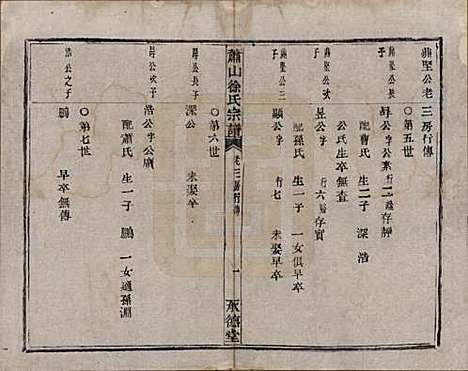 鼎堅公老三房行傳
○第五世
鼎堅公長子
昇公字公素行二號存靜
配曹氏 生二子 深 浩
公氏生卒無查
鼎堅公次子
昱公字 行六號存實
配孫氏 生一子 一女俱早卒
鼎堅公三子
顯公字 行七 未娶早卒
○第六世
蕭山徐氏宗譜
卷 三房行傳
一
承德堂
昇公長子
深公 未娶卒
昇公次子
浩公字公廣
配蕭氏 生一子 鵬 一女適孫淵
○第七世
浩公之子
鵬 早卒無傳